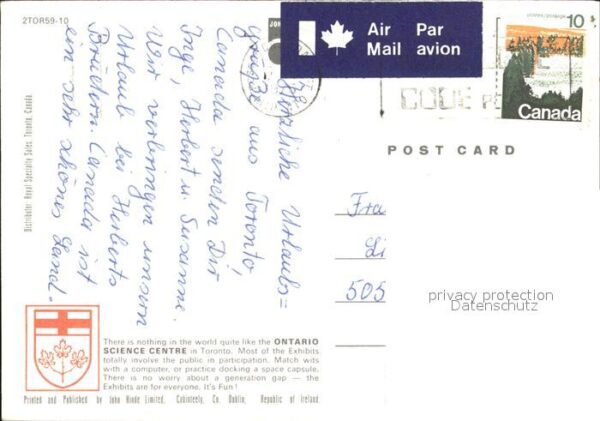 2TOR59-10
Herzliche Urlaubs=
grüße aus Toronto,
Canada senden Dir
Inge, Herbert u. Susanne.
Wir verbringen unsern
Urlaub bei Herberts
Brüdern. Canada ist
ein sehr schönes Land.
Distributor: Royal Specialty Sales, Toronto, Canada
Air Par
Mail avion
postes/postage
10
Canada
CODE
POST CARD
Fra
Li
505
privacy protection
Datenschutz
There is nothing in the world quite like the ONTARIO
SCIENCE CENTRE in Toronto. Most of the Exhibits
totally involve the public in participation. Match wits
with a computer, or practice docking a space capsule.
There is no worry about a generation gap — the
Exhibits are for everyone. It's Fun!
Printed and Published by John Hinde Limited, Cabinteely, Co. Dublin, Republic of Ireland